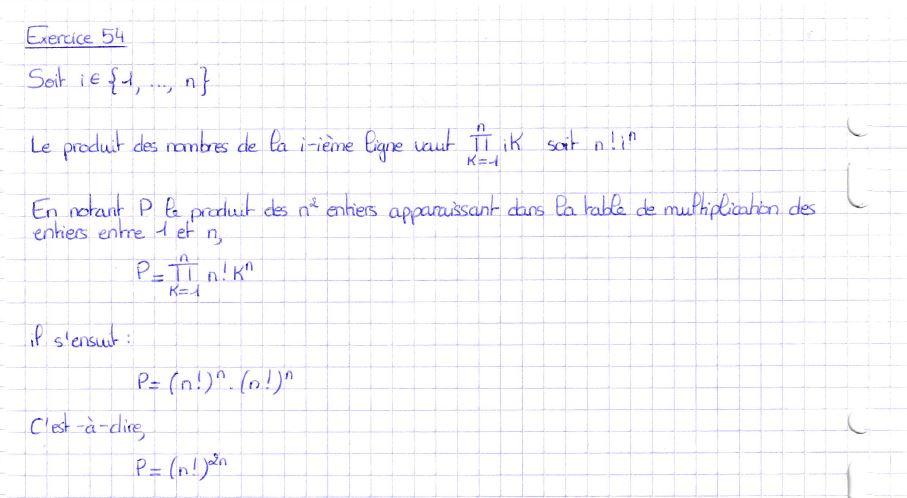 Exercice 54
Soit i ∈ {1, ..., n}
Le produit des nombres de la i-ième ligne vaut ∏_{K=1}^{n} iK soit n! i^n
En notant P le produit des n² entiers apparaissant dans la table de multiplication des
entiers entre 1 et n,
P = ∏_{K=1}^{n} n! K^n
il s'ensuit :
P = (n!)^n . (n!)^n
C'est-à-dire,
P = (n!)^{2n}